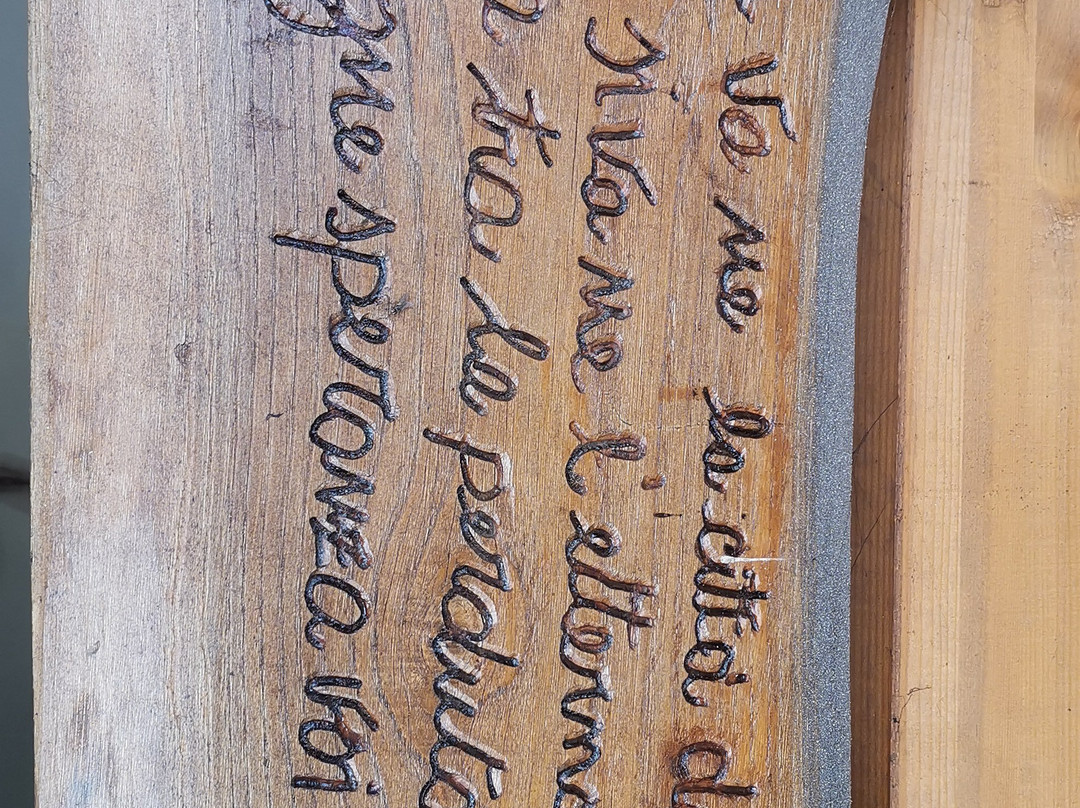 va ne la città d
si va ne l'ettern
a tra la perduta
ogne speranza voi